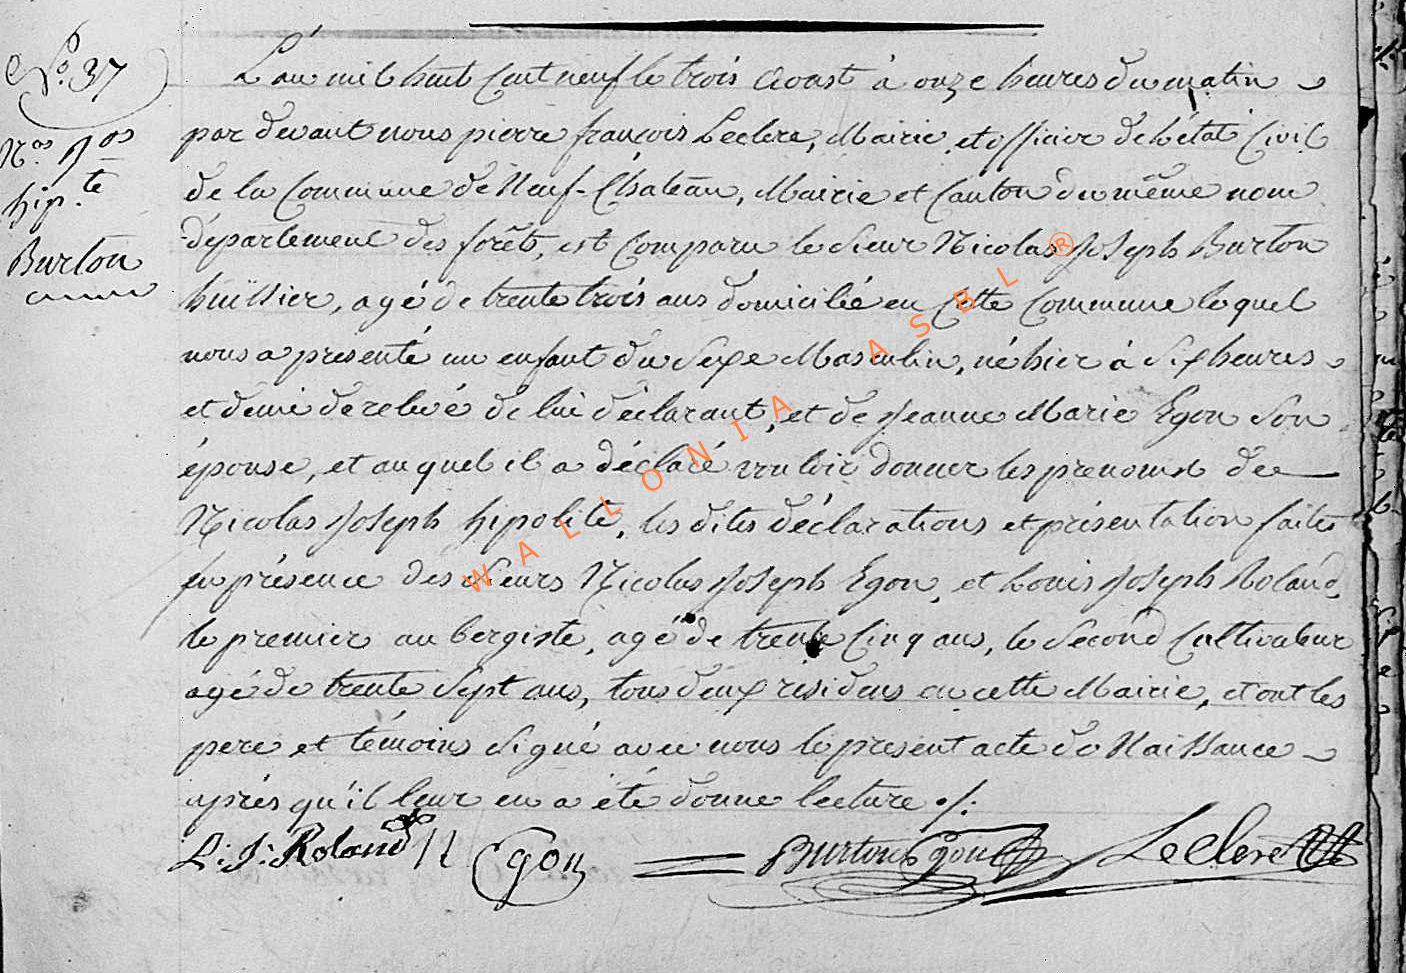 No. 37
Nas Jos
hip.te
Burton
L'an mil huit Cent neuf le trois Aoust à onze heures du matin
par devant nous pierre françois Leclere, Mairie, et officier de L'état Civil
de la Commune de Neuf-Château, Mairie et Canton du même nom
département des forêts, est Comparu le Sieur Nicolas Joseph Burton
huissier, agé de trente trois ans domicilié en Cette Commune lequel
nous a presenté un enfant du Sexe Masculin, né hier à Six heures
et demie de relevé de lui déclarant, et de Jeanne Marie Egon Son
épouse, et auquel il a déclaré vouloir donner les prenoms de
Nicolas Joseph hipolite, les dites déclarations et présentation faites
en présence des Sieurs Nicolas Joseph Egon, et Louis Joseph Roland,
le premier aubergiste, agé de trente Cinq ans, le Second Cultivateur
agé de trente Sept ans, tous deux residens en cette Mairie, et ont les
pere et témoins Signé avec nous le present acte de Naissance
après qu'il leur en a été donné lecture ./.
L: J: Roland N Egon Burton Egon Leclere
WALLONIA ASBL ®